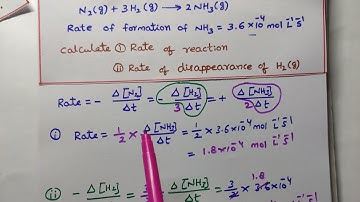 N₂(g) + 3H₂(g) → 2NH₃(g)
Rate of formation of NH₃ = 3.6 × 10⁻⁴ mol L⁻¹ S⁻¹
calculate ① Rate of reaction
② Rate of disappearance of H₂(g)
Rate = - Δ[N₂]/Δt = - Δ[H₂]/3Δt = + Δ[NH₃]/2Δt
(i) Rate = 1/2 × Δ[NH₃]/Δt = 1/2 × 3.6×10⁻⁴ mol L⁻¹ S⁻¹
= 1.8×10⁻⁴ mol L⁻¹ S⁻¹
(ii) - Δ[H₂]/ = 3/ Δ[NH₃] = 3/2 × 3.6×10⁻⁴
1.8